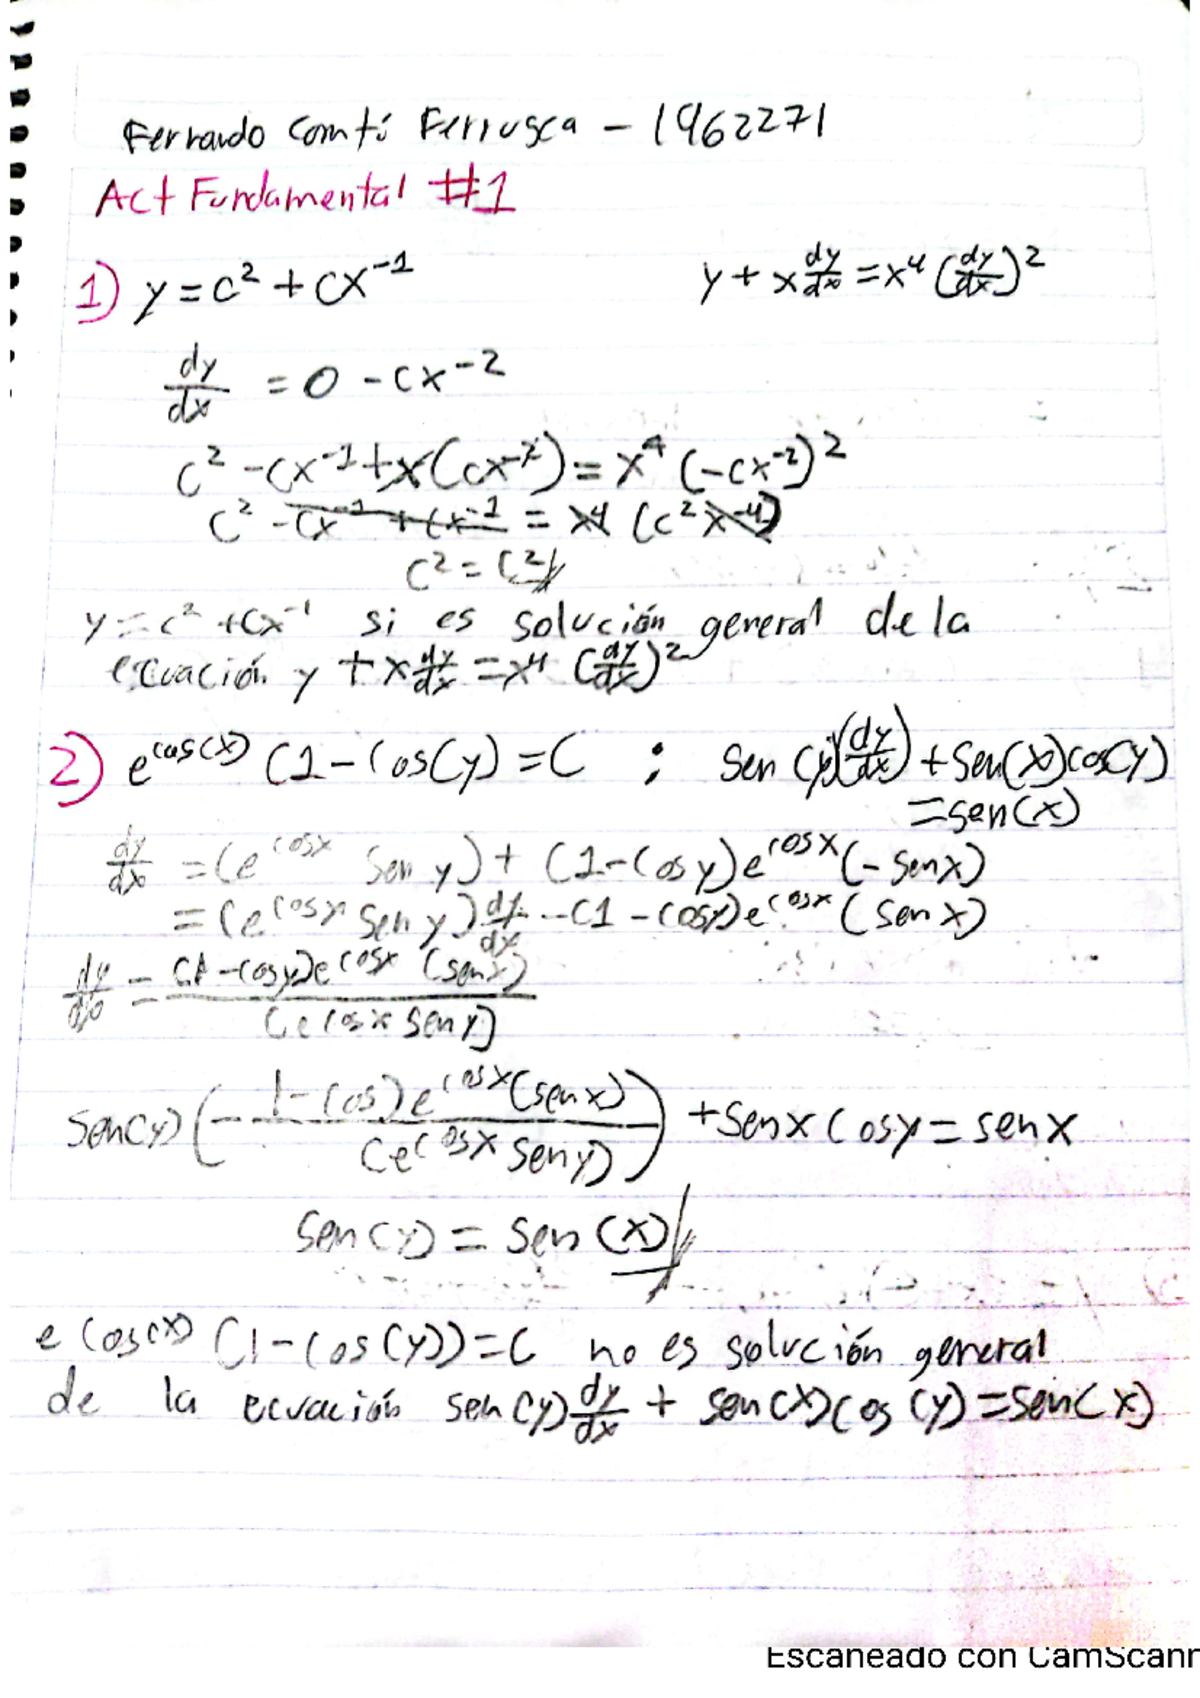 Fernando Comtí Ferrusca - 1962271
Act Fundamental #1
1) y = c² + cx⁻¹    y + x dy/dx = x⁴ (dy/dx)²
dy/dx = 0 - cx⁻²
c² - cx⁻¹ + x(cx⁻²) = x⁴ (-cx⁻²)²
c² - cx⁻¹ + cx⁻¹ = x⁴ (c² x⁻⁴)
c² = c²
y = c² + cx⁻¹ si es solución general de la
ecuación y + x dy/dx = x⁴ (dy/dx)²
2) e^cos(x) (1 - cos(y) = C ; sen(y)(dy/dx) + sen(x)cos(y)
= sen(x)
dy/dx = (e^cosx sen y) + (1 - cos y) e^cosx (- sen x)
= (e^cosx sen y) dy/dx - (1 - cosy) e^cosx (sen x)
dy/dx = (1 - cosy) e^cosx (senx) / (e^cosx sen y)
sen(y) (- 1 - cos) e^cosx (sen x) / (e^cosx sen y) ) + sen x cos y = sen x
sen(y) = sen(x)
e^cos(x) (1 - cos(y)) = C no es solución general
de la ecuación sen(y) dy/dx + sen(x)cos(y) = sen(x)
Escaneado con CamScann